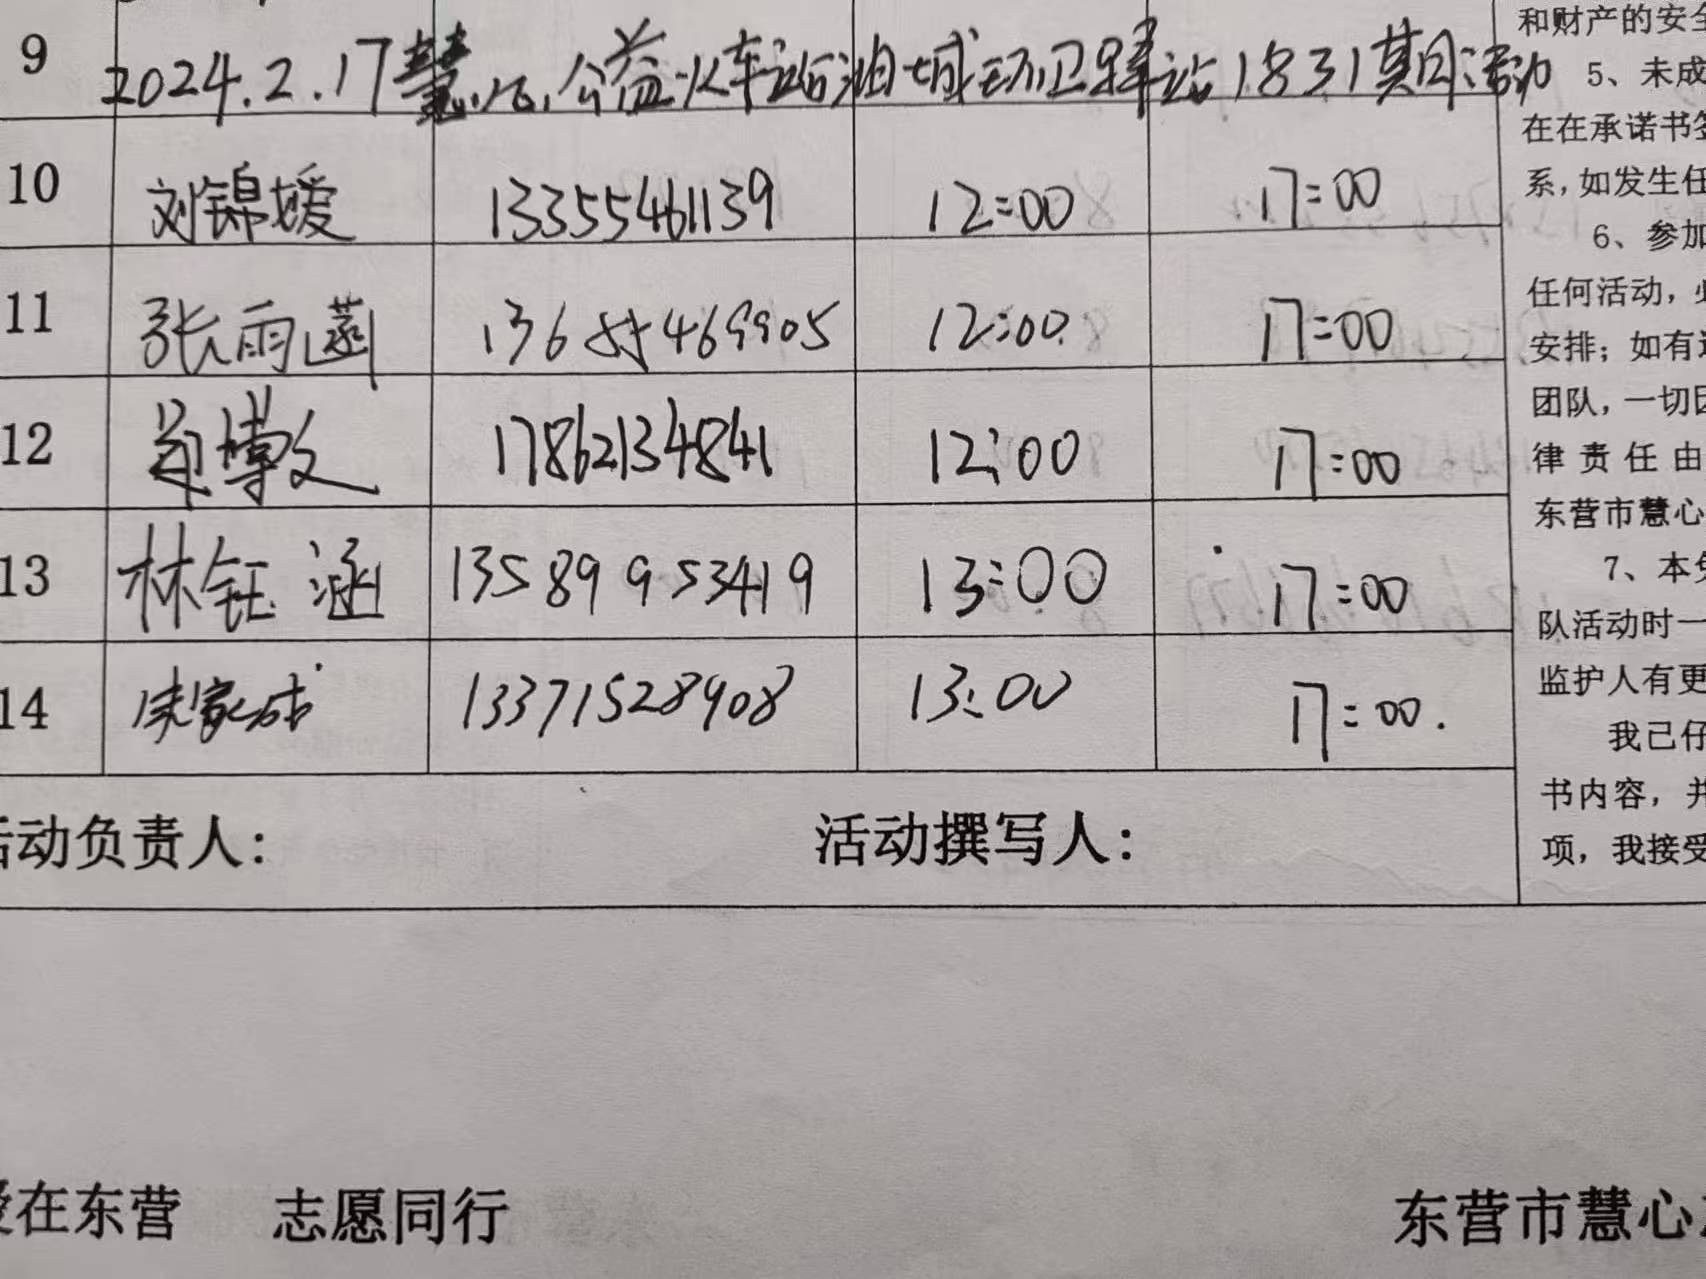 9 2024.2.17慧心公益火车站油城环卫驿站1831期活动
10 刘锦媛 13355461139 12:00 17:00
11 张雨菡 13655469905 12:00 17:00
12 博文 17862134841 12:00 17:00
13 林钰涵 13589953419 13:00 17:00
14 家成 13371528908 13:00 17:00.
活动负责人: 活动撰写人:
和财产的安全
5、未成
在在承诺书签
系,如发生任
6、参加
任何活动,
安排;如有
团队,一切因
律责任由
东营市慧心
7、本免
队活动时一
监护人有更
我已仔
书内容,并
项,我接受
爱在东营 志愿同行 东营市慧心